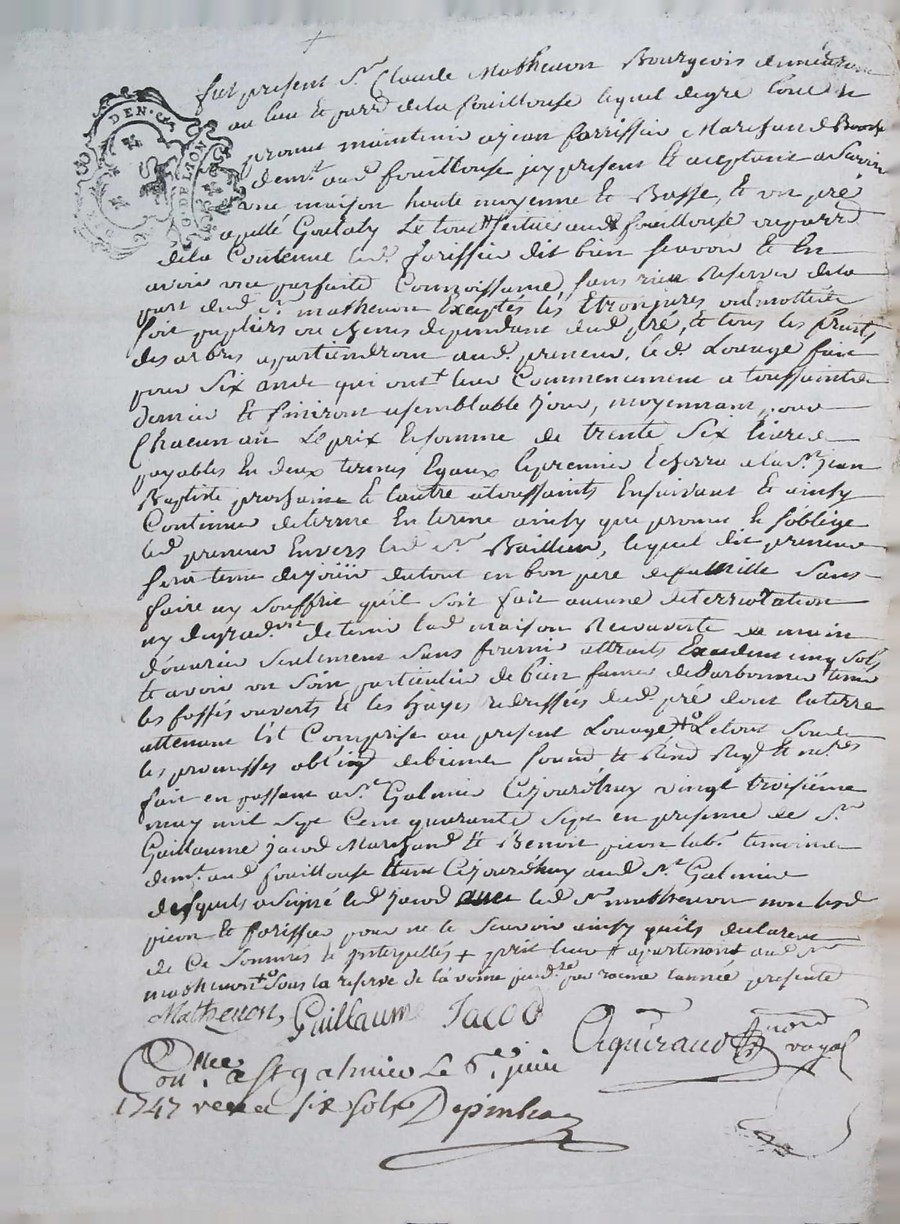 DEN.
G. DE LION
fut present Sr. Claude Matheuon Bourgeois demeurant
au lieu et parr. de la fouillouse lequel de gre loue et
promet maintenir a jean forissier Marchand
demt. aud fouillouse jcy present et aceptant a scavoir
une maison haute moyenne et Basse, et un pré
apellé Goutaty Le tout scitue aud fouillouse
de la Contenue led. forissier dit bien scavoir et En
avoir une parfaite Connoissance, sans rien Reserver de la
part dud sr. matheuon Exceptés les
soit pupliers ou chenes dependant dud. pré, et tous les fruits
des arbres apartiendront aud. preneur, le d. Louage fait
pour Six année qui ont leur Commencement a toussaints
dernier et finiront a semblable jour, moyennant pour
Chacun an Le prix et somme de trente six livres
payables En deux termes Egaux le premier Echerra a la St. jean
Baptiste prochaine et l'autre a toussaints Ensuivant et ainsy
Continuer de terme En terme ainsy que promet et s'oblige
led preneur Envers led. Sr. Bailleur, lequel dit preneur
sera tenu de jouir du tout en bon pere de famille sans
faire ny souffrir qu'il soit fait aucune deterriotation
ny degradon. de tenir lad. maison Recouverte de main
d'ouvrier seulement sans fournir attraits Exedent cinq sols
et avoir un soin particulier de bien fumer tenir
les fossés ouverts et les hayes redressées dud. pré dont la terre
attenant Est Comprise au present Louage Le tout sous
les promesses oblig.
fait en passant a St. Galmier Cejourd'huy vingt troisieme
may mil sept Cent quarante sept en presence de Sr.
Guillaume jacod Marchand et Benoit pieon labr. temoins
demt. aud fouillouse Etant Cejourd'huy aud St. Galmier
desquels a signé led jacod avec led. Sr. matheuon non lesd
pieon et forissier pour ne le scavoir ainsy qu'ils declarent
de Ce Sommés et jnterpellés + apartenant aud Sr
matheuon sous la reserve de la l'année presente
Matheuon, Guillaume Jacod
Aguiraud no. royal
Conllée a St galmier Le 6e. juin
1747 reçu six sols Depinhac